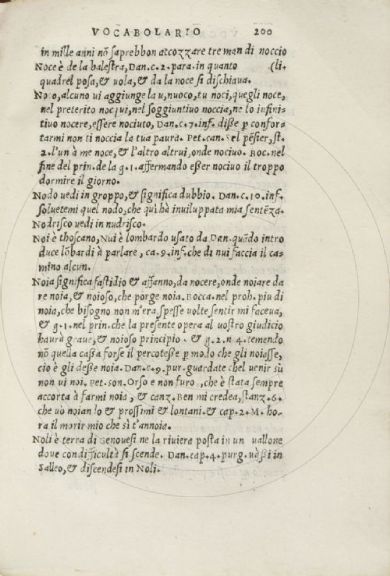 VOCABOLARIO 200
in mille anni nõ saprebbon accozzare tre man di noccio
Noce è de la balestra, Dan. c. 2. para. in quanto (li.
quadrel posa, & uola, & da la noce si dischiaua.
alcuno ui aggiunge la u, nuoco, tu noci, quegli noce,
nel preterito nocqui, nel soggiuntiuo noccia, ne lo infini-
tiuo nocere, essere nociuto, Dan. c. 7. inf. disse p confor-
tarmi non ti noccia la tua paura. Pet. can. s'el pẽsier, st.
2. l'un à me noce, & l'altro altrui, onde nociuo. Boc. nel
fine del prin. de la g. 1. affermando esser nociuo il troppo
dormire il giorno.
Nodo uedi in groppo, & significa dubbio. Dan. c. 10. inf.
soluetemi quel nodo, che quì hà inuiluppata mia sentẽza.
Nodrisco uedi in nudrisco.
Noi è thoscano, Nui è lombardo usato da Dan. quãdo intro
duce lõbardi à parlare, ca. 9. inf. che di nui faccia il ca-
mino alcun.
Noia significa fastidio & affanno, da nocere, onde noiare da
re noia, & noioso, che porge noia. Bocca. nel proh. piu di
noia, che bisogno non m'era spesse uolte sentir mi faceua,
& g. 1. nel prin. che la presente opera al uostro giudicio
haurà graue, & noioso principio. & g. 2. n. 4. temendo
nõ quella cassa forse il percotesse p modo che gli noiasse,
cio è gli desse noia. Dan. c. 9. pur. guardate chel uenir sù
non ui noi. Pet. son. Orso e non furo, che è stata sempre
accorta à farmi noia, & canz. Ben mi credea, stanz. 6.
che uò noian lo & prossimi & lontani. & cap. 2. M. ho-
ra il morir mio che sì t'annoia.
Noli è terra di Genouesi ne la riuiera posta in un uallone
doue con difficultà si scende. Dan. cap. 4. purg. uassi in
Sanleo, & discendesi in Noli.